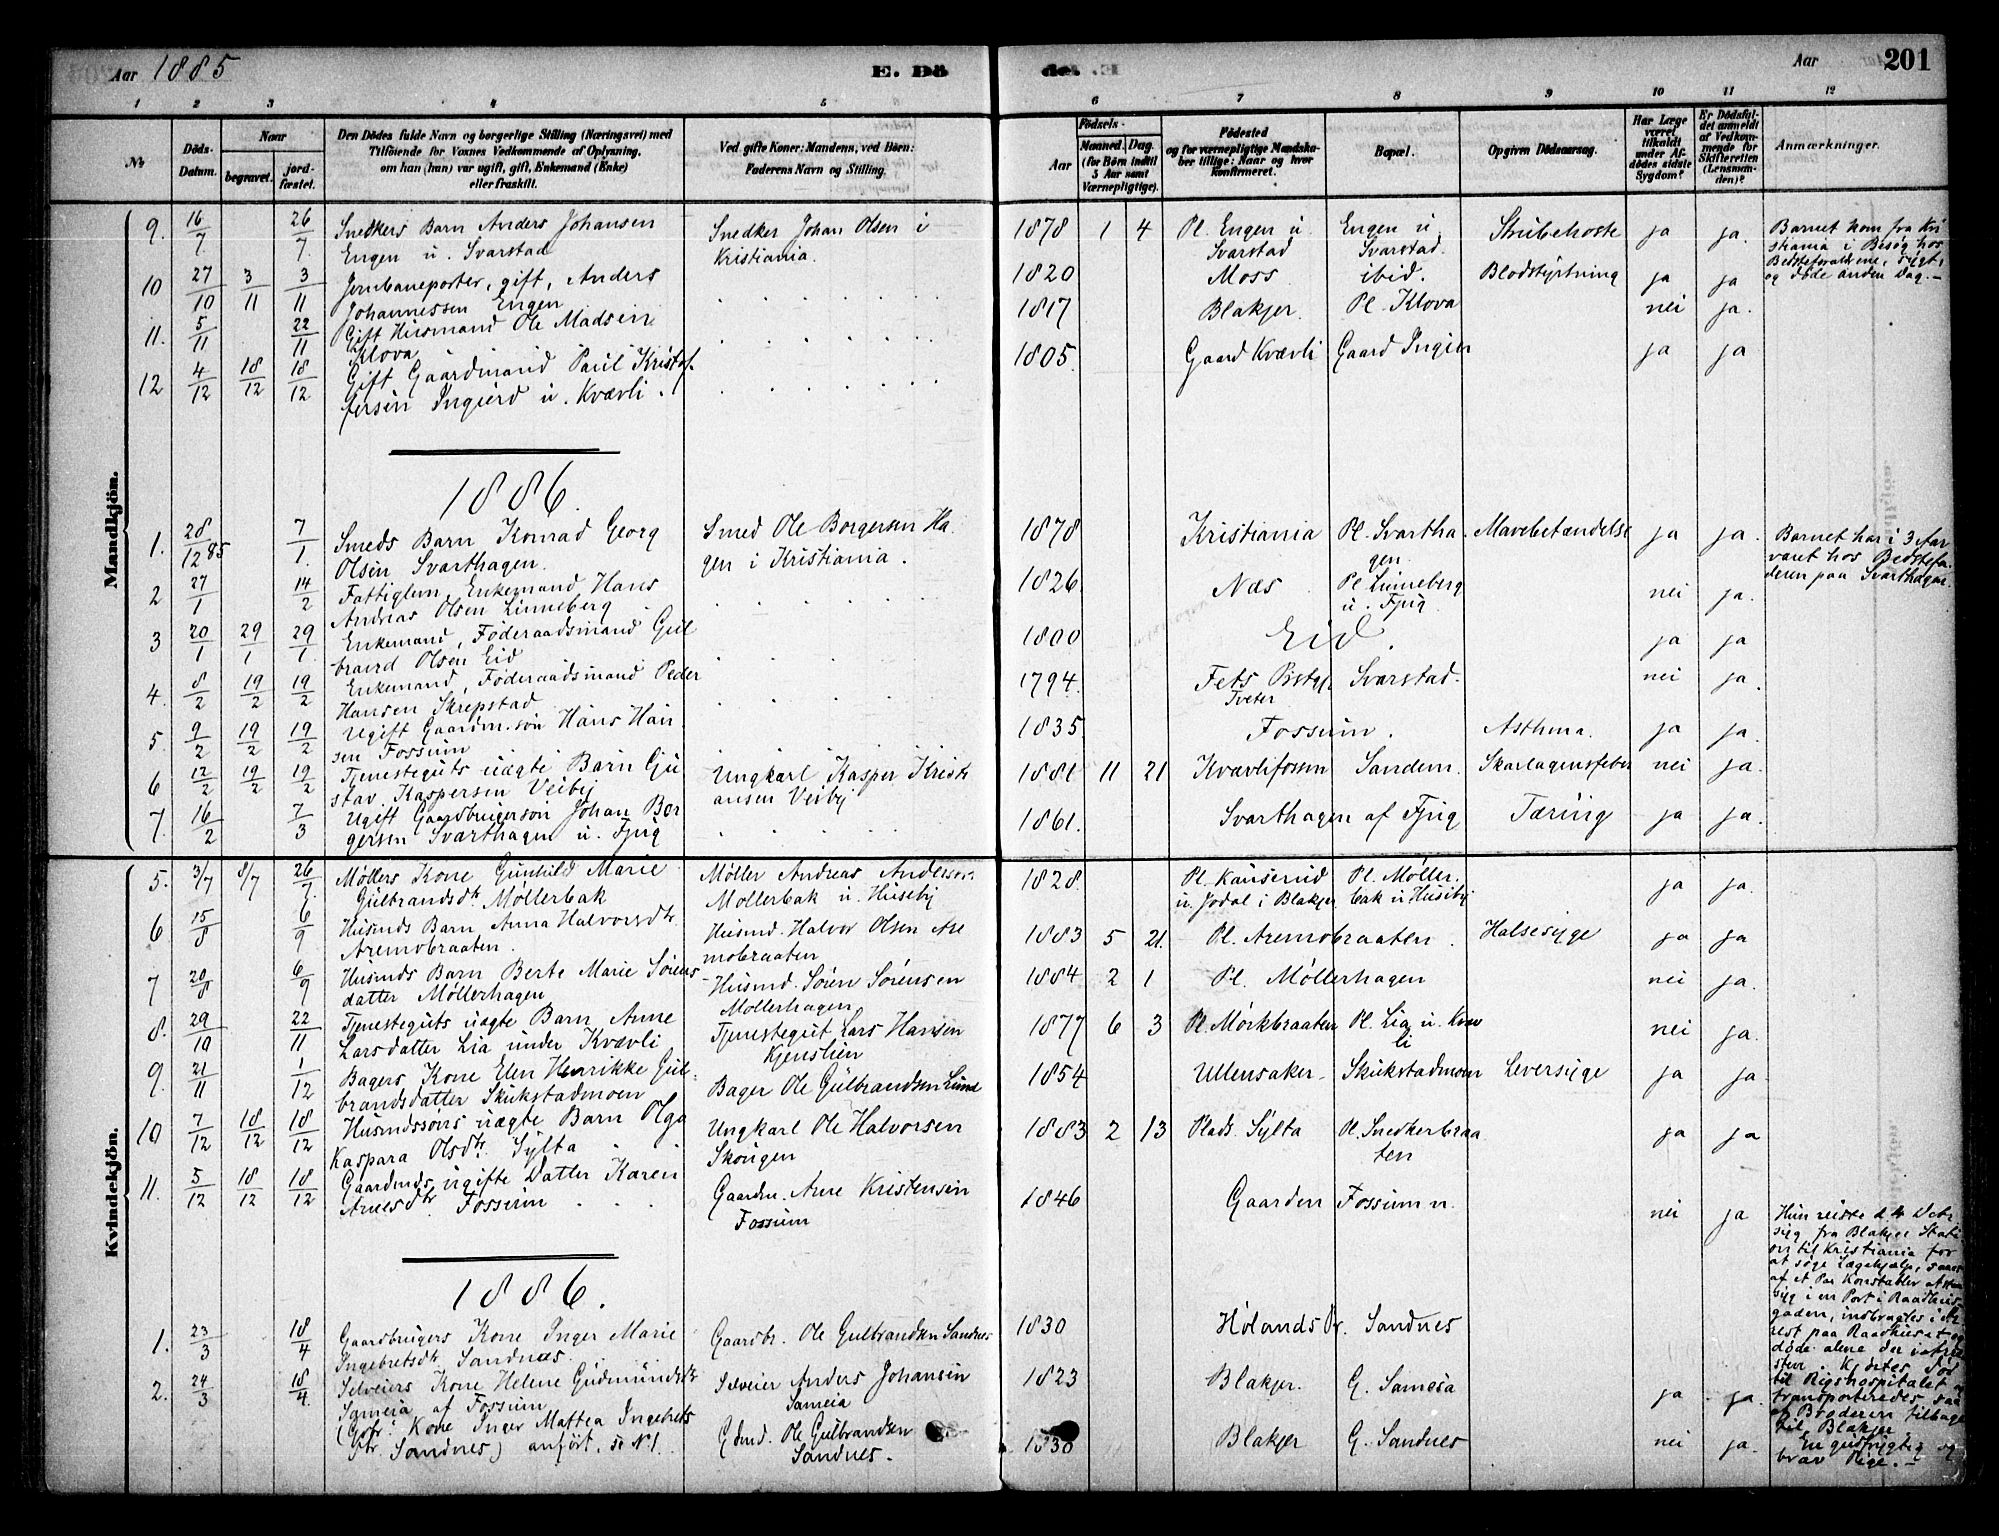 Aar 1885
E. Dö
de.
Aar
201
1 2 3 4 5 6 7 8 9 10 11 12
No
Döds-Datum.
Naar
begravet.
jord-fæstet.
Den Dödes fulde Navn og borgerlige Stilling (Næringsvei) med
Tilföiende for Voxnes Vedkommende af Oplysning,
om han (hun) var ugift, gift, Enkemand (Enke)
eller fraskilt.
Ved gifte Koner: Mandens, ved Börn:
Faderens Navn og Stilling.
Födsels-
Aar
Maaned. Dag.
(for Börn indtil
5 Aar samt
Værnepligtige).
Födested
og for værnepligtige Mandska-
ber tillige: Naar og hvor
konfirmeret.
Bopæl.
Opgiven Dödsaarsag.
Har Læge
været
tilkaldt
under Af-
dödes sidste
Sygdom?
Er Dödsfal-
det anmeldt
af Vedkom-
mende for
Skifteretten
(Lensman-
den)?
Anmærkninger.
Mandkjön.
9. 16/7 26/7 Snedkers Barn Anders Johansen
Engen u. Svarstad
Snedker Johan Olsen i
Kristiania.
1878 1 4 Pl. Engen u.
Svarstad
Engen u.
Svarstad.
Strubehoste ja ja.
Barnet kom fra Kri
stiania i Besøg hos
Bedsteforældrene, sygt,
og døde anden Dag. —
10 27/10 3/11 3/11 Jernbaneporter, gift, Anders
Johannessen Engen
1820 Moss ibid. Blodstyrtning ja ja
11. 5/11 22/11 Gift Husmand Ole Madsen
Klova
1817 Blakjer. Pl. Klova nei ja.
12 4/12 18/12 18/12 Gift Gaardmand Paul Kristof
fersen Ingierd u. Kvævli.
1805. Gaard Kvævli Gaard Ingier ja ja
1886.
1. 28/12 85 7/1. Smeds Barn Konrad Georg
Olsen Svarthagen.
Smed Ole Borgersen Ha
gen i Kristiania.
1878 Kristiania Pl. Svartha
gen.
Mavebetændelse ja ja.
Barnet har i 3 Aar
været hos Bedstefo
deren paa Svarthagen.
2 27/1 14/2 Fattiglem, Enkemand Hans
Andreas Olsen Linneberg
1826. Næs. Pl. Linneberg
u. Fjug
nei ja.
3 20/1 29/1 29/1. Enkemand, Føderaadsmand Gul
brand Olsen Eid
1800 Eid. ja ja
4. 8/2 19/2 19/2 Enkemand, Føderaadsmand Peder
Hansen Skrepstad
1794. Fets Pstgj.
Tveter
Svarstad. nei ja.
5. 9/2 19/2 19/2 Ugift Gaardm. søn Hans Han
sen Fossum
1835 Fossum. Asthma. ja ja.
6 12/2 19/2 19/2 Tjenesteguts uægte Barn Gu
stav Kaspersen Veiby
Ungkarl Kasper Kristi
ansen Veiby
1881 11 21 Kvævlifossen Sandem. Skarlagensfeber nei ja.
7. 16/2 7/3 Ugift Gaardbrugersøn Johan Bor
gersen Svarthagen u. Fjug
1861. Svarthagen af Fjug Tæring ja ja.
Kvindekjön.
5. 3/7 8/7 26/7. Møllers Kone Gunhild Marie
Gulbrandsdtr. Møllerbak
Møller Andreas Anderson
Møllerbak u. Huseby
1828. Pl. Kauserud
u. Jodal i Blakjer
Pl. Møller.
bak u Huseby
ja ja.
6 15/8 6/9 Husmds Barn Anna Halvorsdtr.
Aremobraaten.
Husmd. Halvor Olsen Are
mobraaten
1883 5 21. Pl. Aremobraaten. Halsesyge ja ja
7 20/8 6/9 Husmds Barn Berte Marie Sørens
datter Møllerhagen
Husmd. Søren Sørensen
Møllerhagen
1884 2 1 Pl. Møllerhagen nei ja.
8. 29/10 22/11 Tjenesteguts uægte Barn Anne
Larsdatter Lia under Kvævli
Tjenestegut Lars Hansen
Kjenslien
1877 6 3 Pl. Mørkbraaten Pl. Lia u. Kvæv
li
nei ja.
9. 21/11 1/12 Bagers Kone Elen Henrikke Gul-
brandsdatter Skukstadmoen
Bager Ole Gulbrandsen Lund
1854 Ullensaker Skukstadmoen Leversyge ja ja.
10 7/12 18/12 18/12 Husmdssøns uægte Barn Olga
Kaspara Olsdtr. Sylta
Ungkarl Ole Halvorsen
Skougen
1883 2 13 Plads. Sylta Pl. Snedkerbraa
ten
ja ja
11. 5/12 18/12 18/12 Gaardmds ugifte Datter Karen
Arnesdtr. Fossum
Gaardm. Arne Kristensen
Fossum
1846 Gaarden Fossum n. nei ja
Hun reiste d. 4 Debr.
syg fra Blakjer Stati
on til Kristiania for
at søge Lægehjælp, saaes
af et Par Konstabler
syg i en Port i Raadhus
gaden, indbragtes i Ar
rest paa Raadhuset og
døde alene der
til Rigshospitalet
transporteredes
af Broderen tilbage
til Blakjer.
En gudfrygtig og
brav Pige. —
1886.
1. 23/3 18/4 Gaardbrugers Kone Inger Marie
Ingebretsdtr. Sandnæs.
Gaardbr. Ole Gulbrandsen Sandnes
1830 Hølands Pr. Sandnes
2. 24/3 18/4. Selveiers Kone Helene Gudmundsdtr
Sameia af Fossum
Selveier Anders Johansen
Sameia
1823 Blakjer. G. Sameia ja ja.
Kone Inger Mathea Ingebrets
dtr. Sandnes) anført, se N 1.
Gdmd. Ole Gulbrandsen
Sandnes.
1830 Blakjer G. Sandnes nei ja.